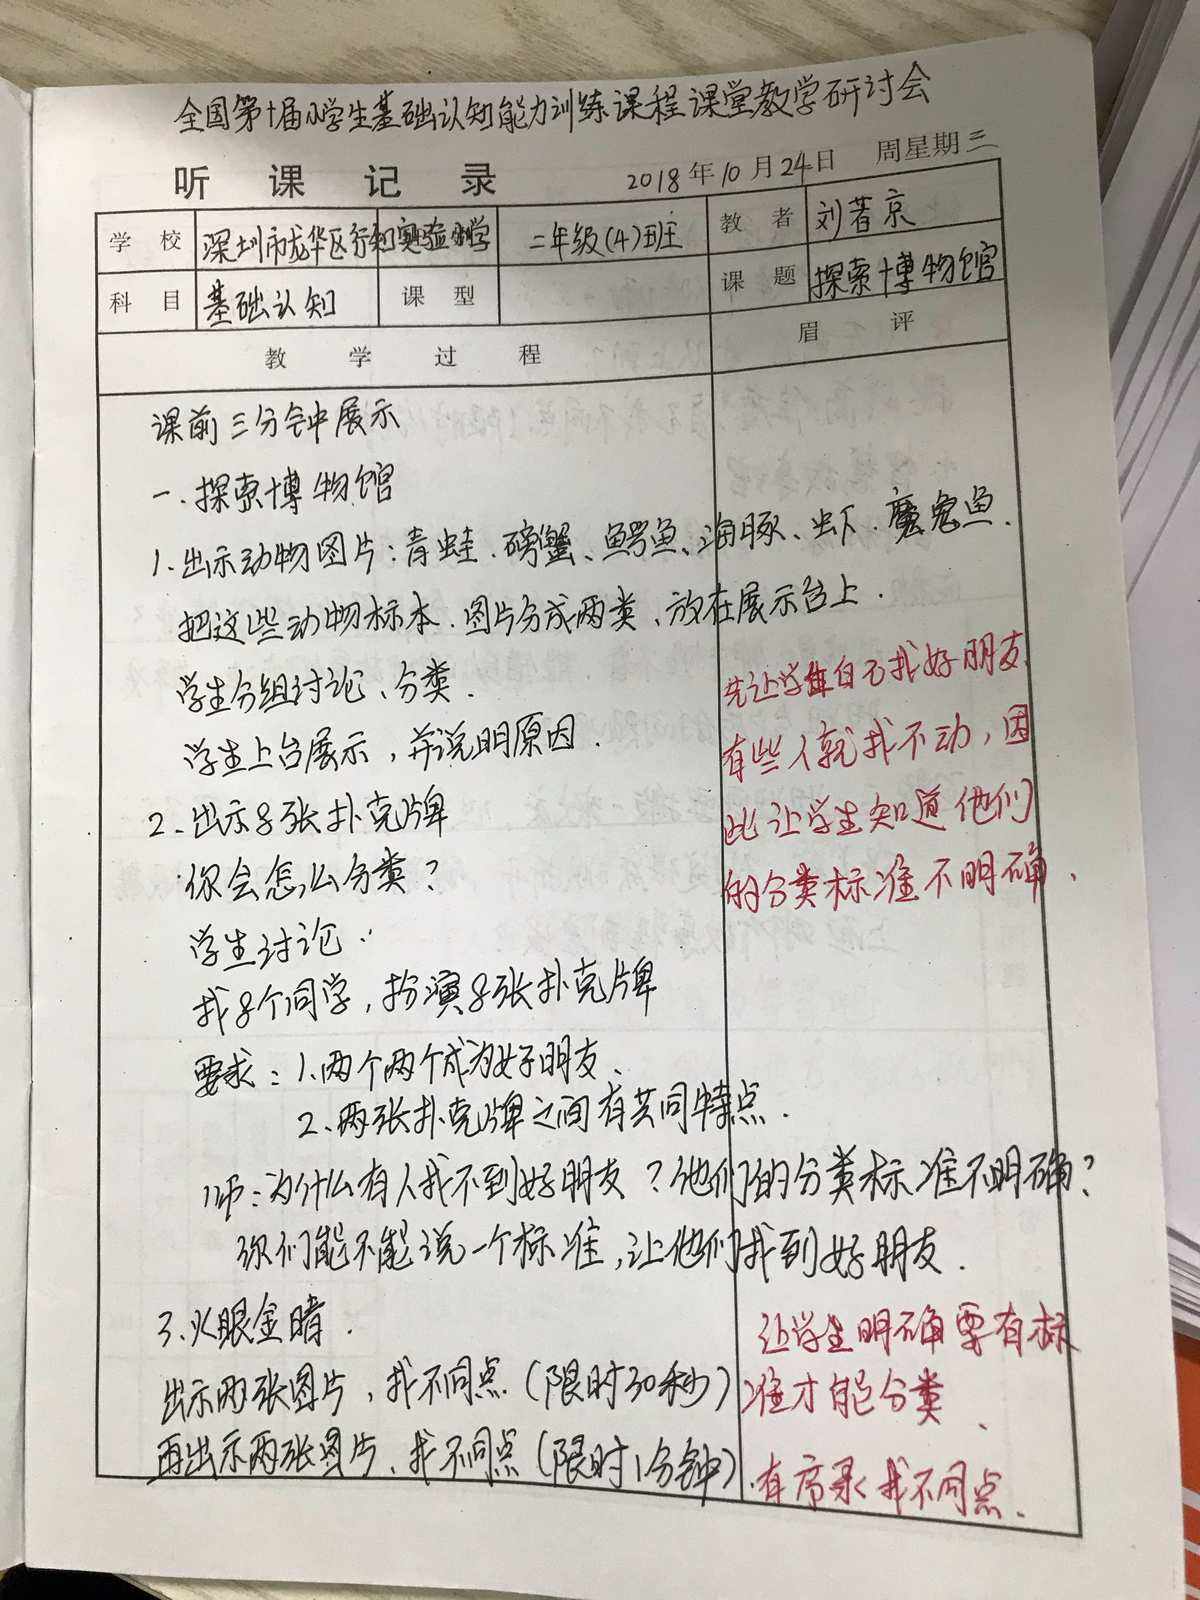 全国第十届小学生基础认知能力训练课程课堂教学研讨会
听课记录 2018年10月24日 周星期三
学校 深圳市龙华区行知实验小学 二年级(4)班 教者 刘若京
科目 基础认知 课型 课题 探索博物馆
教学过程 眉评
课前三分钟展示
一、探索博物馆
1、出示动物图片：青蛙、螃蟹、鳄鱼、海豚、虾、魔鬼鱼.
把这些动物标本、图片分成两类、放在展示台上.
学生分组讨论、分类.
学生上台展示，并说明原因.
2、出示8张扑克牌
你会怎么分类？
学生讨论..
找8个同学，扮演8张扑克牌
要求：1、两个两个成为好朋友、
2、两张扑克牌之间有共同特点.
师：为什么有人找不到好朋友？他们的分类标准不明确？
你们能不能说一个标准，让他们找到好朋友.
3、火眼金睛.
出示两张图片，找不同点（限时30秒）
再出示两张图片、找不同点（限时1分钟）
先让学生自己找好朋友
有些人就找不动，因
此让学生知道他们
的分类标准不明确、
让学生明确要有标
准才能分类、
有序找不同点.